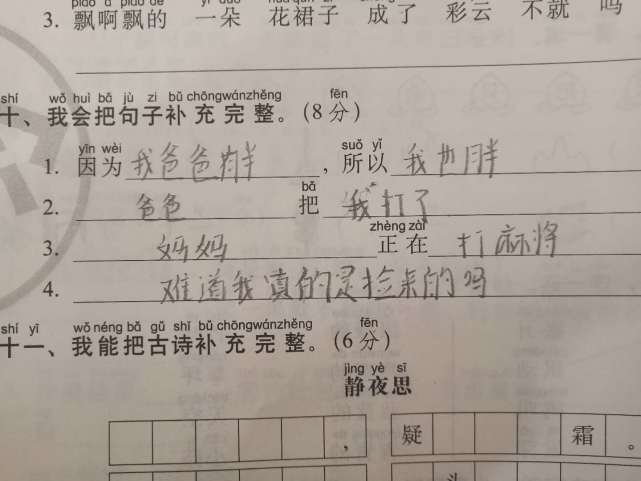 3. 飘啊飘的 一朵 花裙子 成了 彩云 不就 吗
shí wǒ huì bǎ jù zi bǔ chōng wán zhěng fēn
十、我会把句子补充完整。(8分)
yīn wèi suǒ yǐ
1. 因为我爸爸胖，所以我也胖
bǎ
2. 爸爸把我打了
zhèng zài
3. 妈妈正在打麻将
4. 难道我真的是捡来的吗
shí yī wǒ néng bǎ gǔ shī bǔ chōng wán zhěng fēn
十一、我能把古诗补充完整。(6分)
jìng yè sī
静夜思
，疑霜。